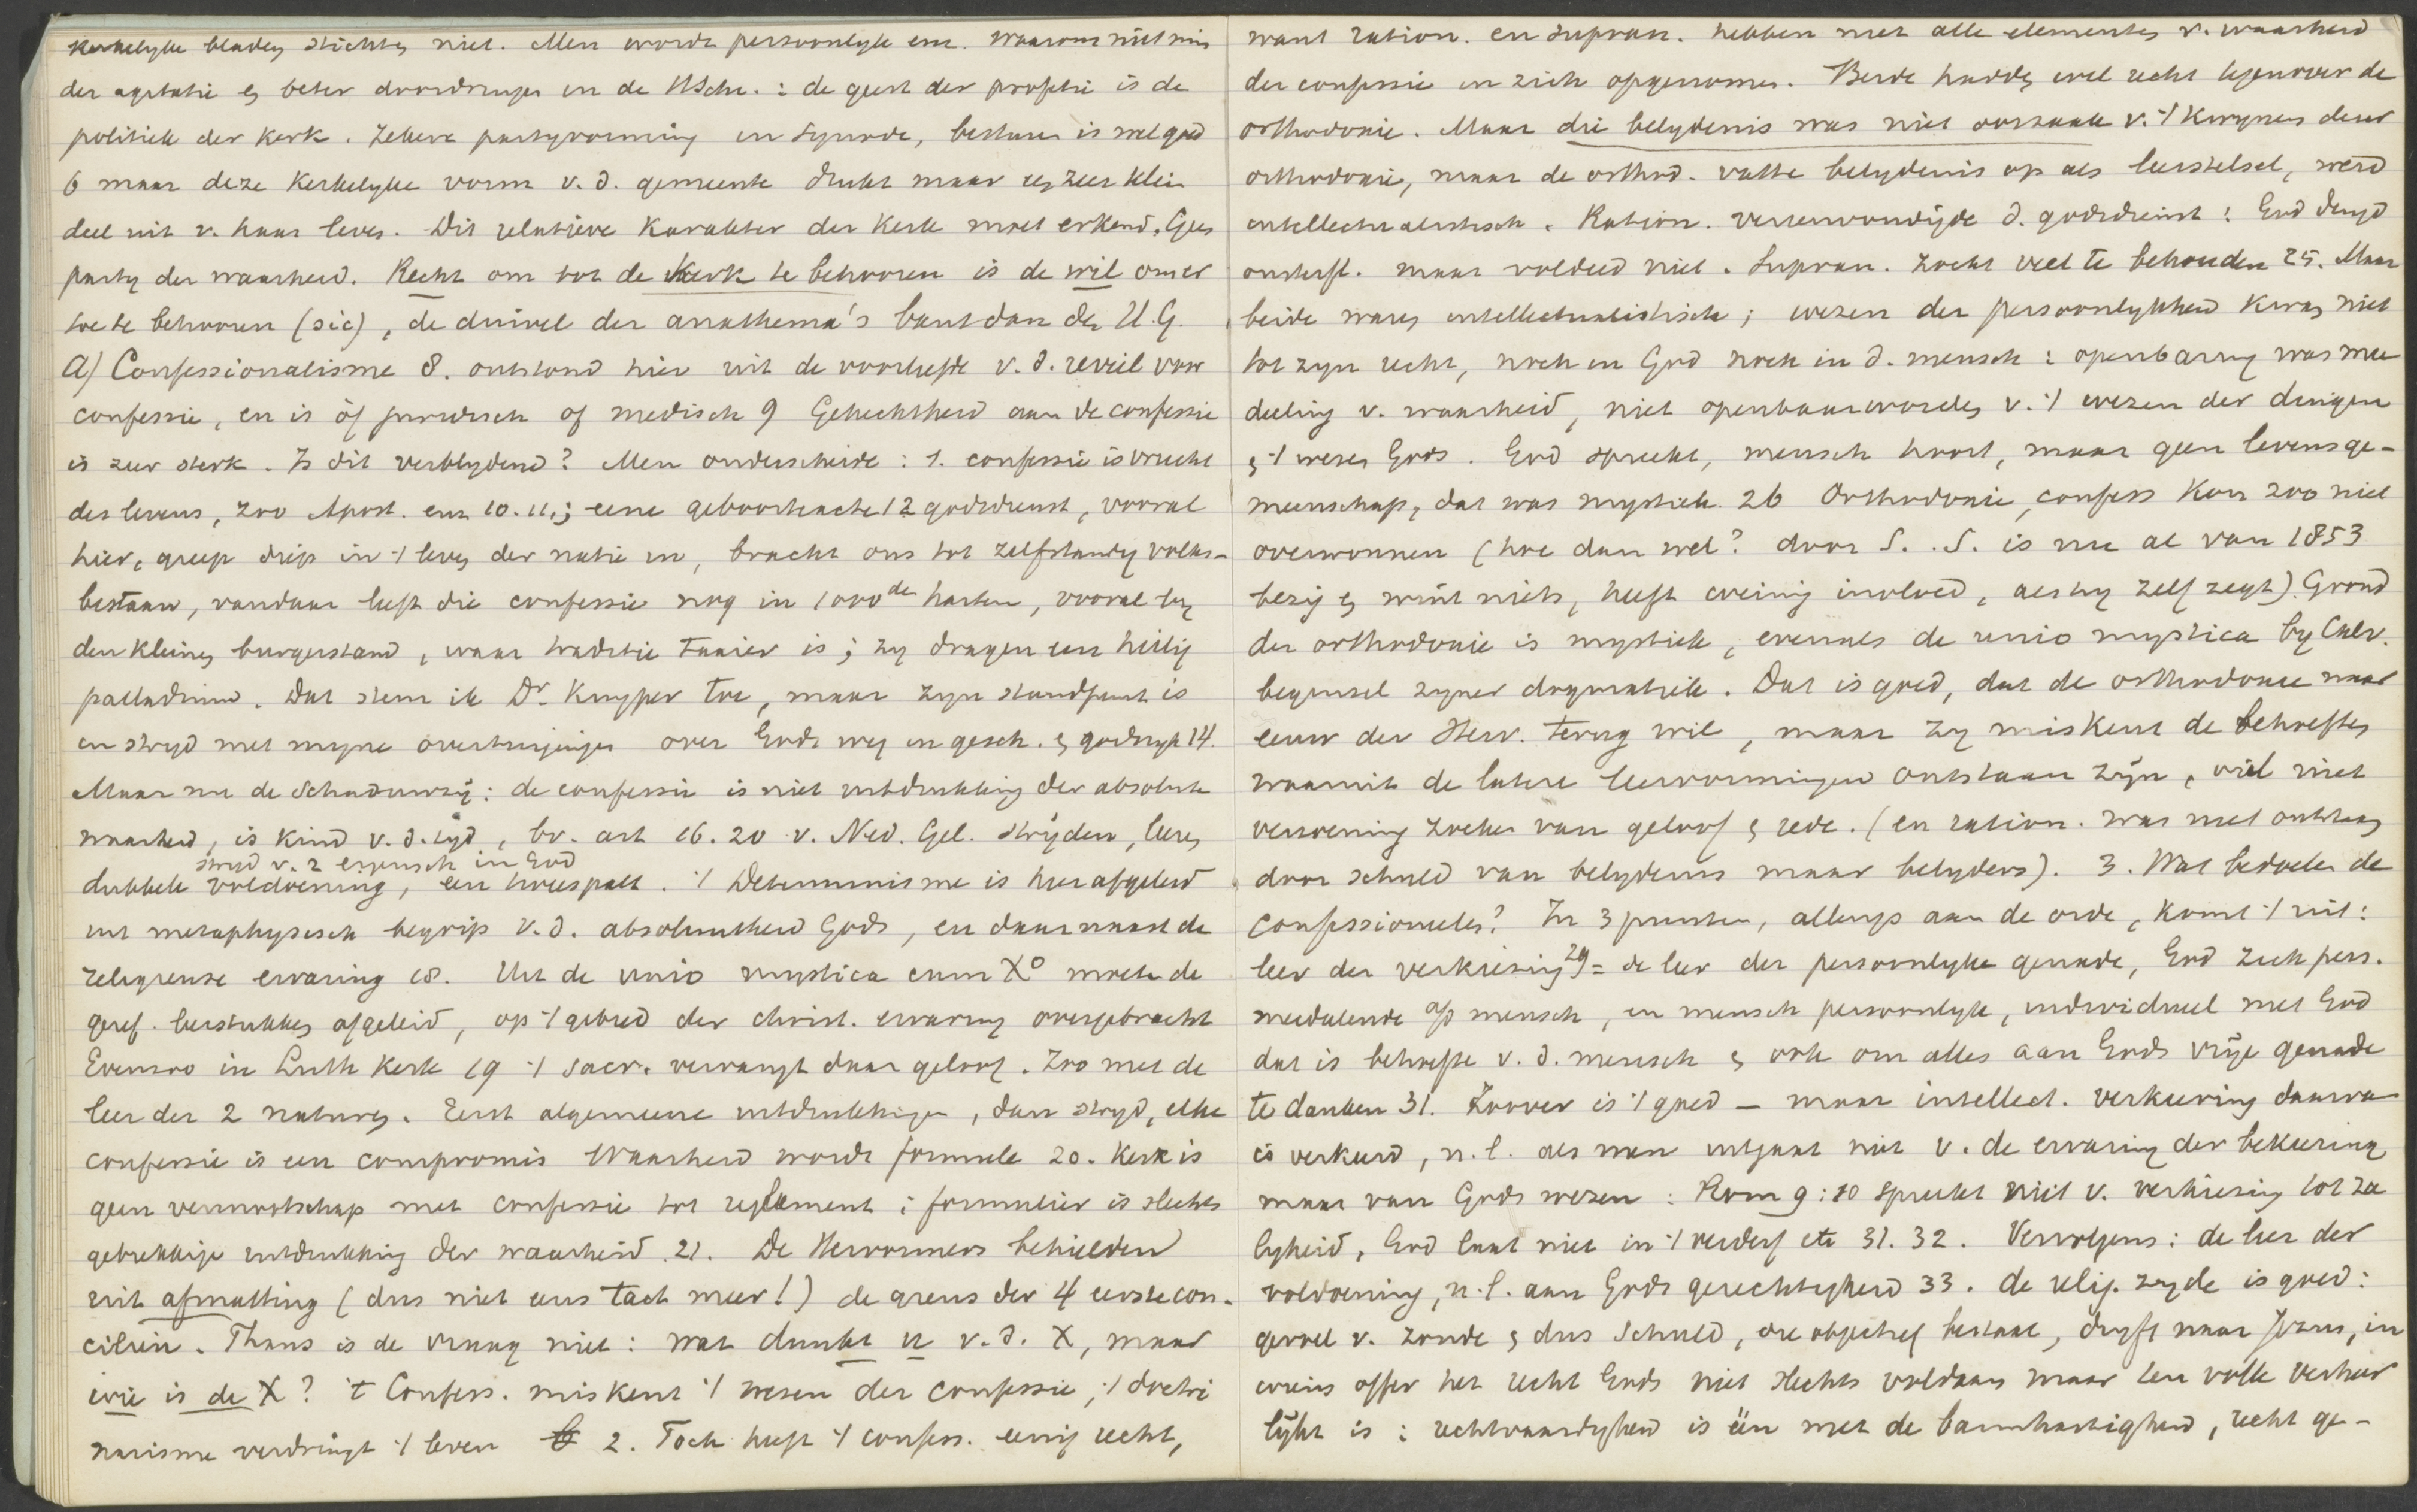 kerkelyke bladen stichten niet. Men wordt persoonlyk enz. Waarom niet min
der agitatie en beter doordringen in de HSchr.: de geest der profetie is de
politiek der kerk. Zekere partyvorming in Synode, besturen is wel goed
6 maar deze kerkelyke vorm v. d. gemeente drukt maar een zeer klein
deel uit v. haar leven. Dit relatieve karakter der kerk moet erkend. Geen
party der waarheid. Recht om tot de kerk te behooren is de wil om er
toe te behooren (sic), de duivel der anathema's bant dan de H.G.
a) Confessionalisme 8. ontstond hier uit de voorliefde v. d. reveil voor
confessie, en is òf juridisch of medisch 9 Gehechtheid aan de confessie
is zeer sterk. Is dit verblydend? Men onderscheide: 1. confessie is vrucht
des levens, zoo Apost. enz 10. 11.; eene geboorteacte 12 godsdienst, vooral
hier, greep diep in 't leven der natie in, bracht ons tot zelfstandig volks-
bestaan, vandaar leeft die confessie nog in 1000den harten, vooral by
den kleinen burgerstand, waar traditie taaier is; zy dragen een heilig
palladium. Dat stem ik Dr. Kuyper toe, maar zyn standpunt is
in stryd met myne overtuigingen over Gods weg in gesch. en godsryk 14.
Maar nu de Schaduwzij: de confessie is niet uitdrukking der absolute
waarheid, is kind v. d. tyd, bv. art 16. 20 v. Ned. Gel. strijden, leeren
stryd v. 2 eigensch in God
dubbele voldoening, een tweespalt. 't Determinisme is hier afgeleid
uit metaphysisch begrip v. d. absoluutheid Gods, en daarnaast de
religieuse ervaring 18. Uit de unio mystica cum Xo moeten de
geref. leerstukken afgeleid, op 't gebied der christ. ervaring overgebracht
Evenzoo in Luth kerk 19 't sacr. vervangt daar geloof. Zoo met de
leer der 2 naturen. Eerst algemeene uitdrukkingen, dan stryd, elke
confessie is een compromis Waarheid wordt formule 20. Kerk is
geen vennootschap met confessie tot reglement; formulier is slechts
gebrekkige uitdrukking der waarheid. 21. De Hervormers behielden
uit afmatting (dus niet eens tact meer!) de grens der 4 eerste con-
ciliën. Thans is de vraag niet: wat dunkt u v. d. X, maar
wie is de X? 't Confess. miskent 't wezen der confessie, 't doctri
narisme verdringt 't leven 2. Toch heeft 't confess. eenig recht,
want ration. en supran. hebben niet alle elementen v. waarheid
der confessie in zich opgenomen. Beide hadden wel recht tegenover de
orthodoxie. Maar die belydenis was niet oorzaak v. 't kwynen dezer
orthodoxie, maar de orthod. vatte belydenis op als leerstelsel, werd
intellectualistisch. Ration. vereenvoudigde d. godsdienst: God deugd
onsterfl. maar voldeed niet. Supran. zocht veel te behouden 25. Maar
beide waren intellectualistisch; wezen der persoonlykheid kwam niet
tot zyn recht, noch in God noch in d. mensch: openbaring was mee
deeling v. waarheid, niet openbaarworden v. 't wezen der dingen
en 't wezen Gods. God spreekt, mensch hoort, maar geen levensge-
meenschap, dat was mystiek. 26 Orthodoxie, confess kon zoo niet
overwonnen (hoe dan wel? door S. . S. is nu al van 1853
bezig en wint niets, heeft weinig invloed, als hy zelf zegt) Grond
der orthodoxie is mystiek, evenals de unio mystica by Calv.
beginsel zyner dogmatiek. Dat is goed, dat de orthodoxie naar
eeuw der Herv. terug wil, maar zy miskent de behoeften
waaruit de latere leervormingen ontstaan zijn, wil niet
verzoening zoeken van geloof en rede. (en ration. was niet ontstaan
door schuld van belydenis maar belyders). 3. Wat bedoelen de
confessioneelen? In 3 punten, allengs aan de orde, komt 't uit:
leer der verkiezing 29 = de leer der persoonlyke genade, God zich pers.
mededeelende op mensch, en mensch persoonlyk, individueel met God
dat is behoefte v. d. mensch en ook om alles aan Gods vrije genade
te danken 31. Zoover is 't goed — maar intellect. verkeering daarva
is verkeerd, n.l. als men uitgaat niet v. de ervaring der bekeering
maar van Gods wezen: Rom 9:10 spreekt niet v. verkiezing tot za
lyheid, God laat niet in 't verderf etc 31. 32. Vervolgens: de leer der
voldoening, n.l. aan Gods gerechtigheid 33. de relig. zyde is goed:
gevoel v. zonde en dus schuld, die objectief bestaat, dryft naar Jezus, in
wiens offer het recht Gods niet slechts voldaan maar ten volle verheer
lijkt is: rechtvaardigheid is één met de barmhartigheid, recht ge-